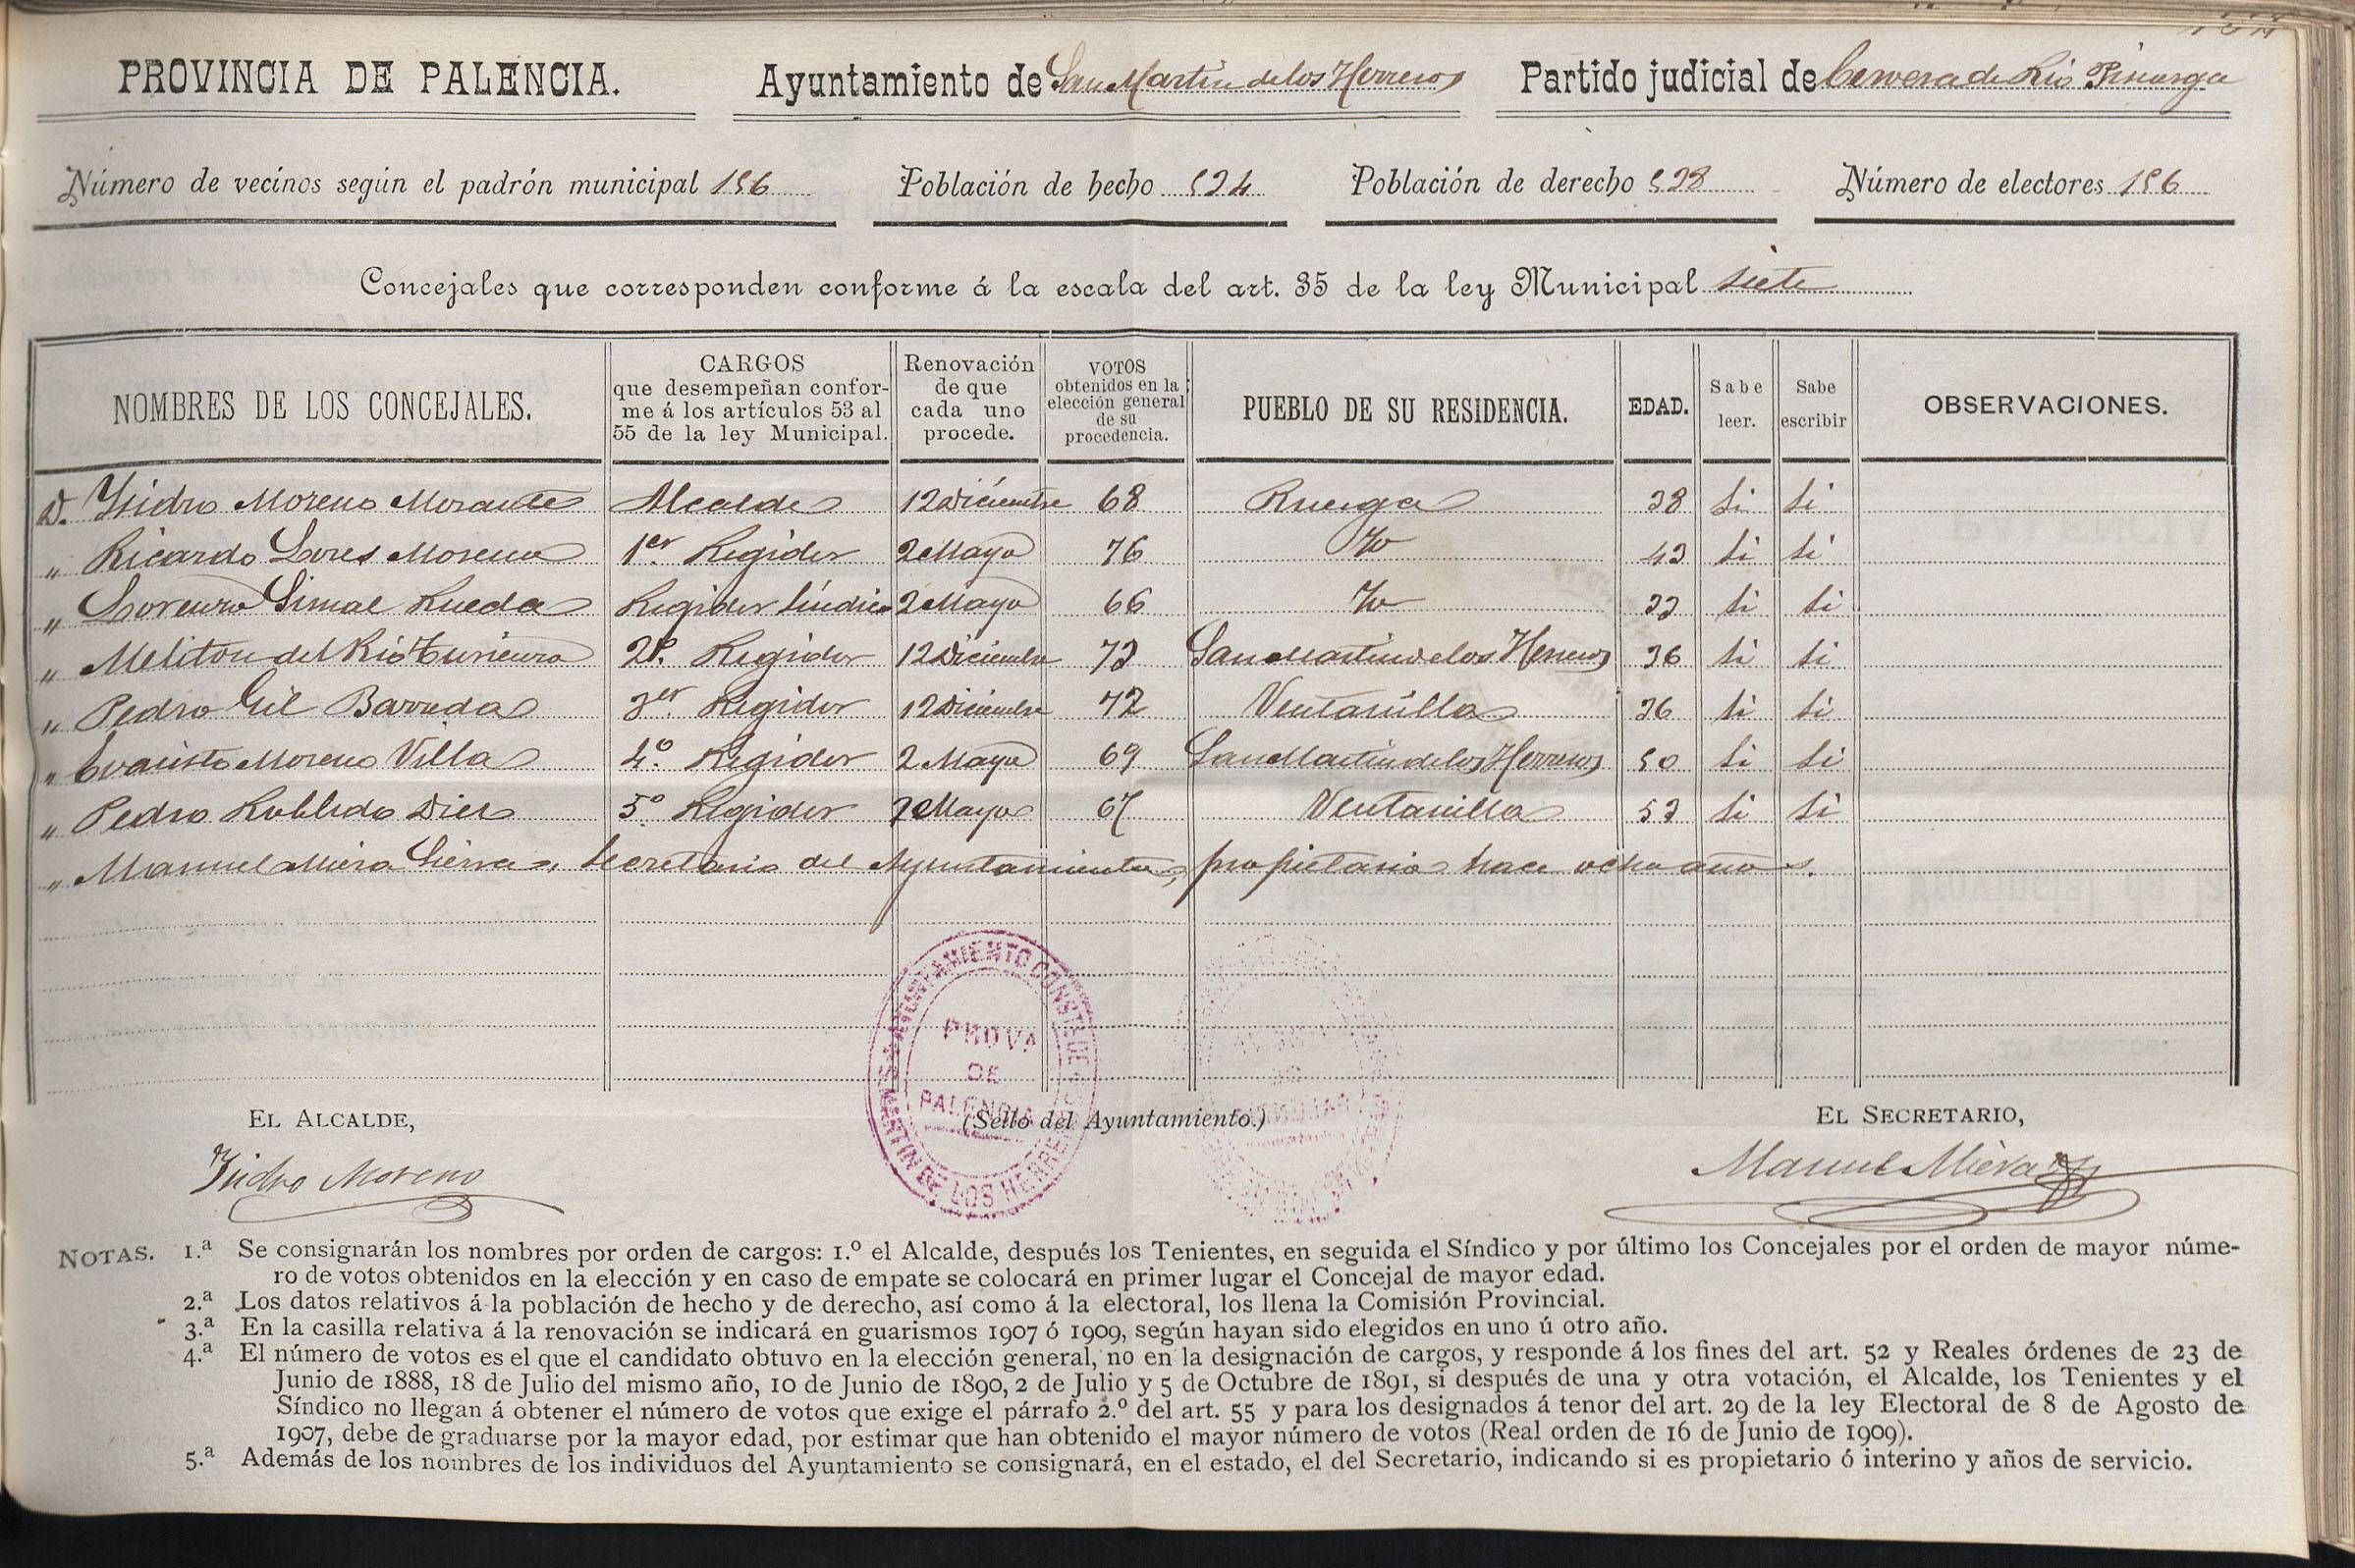 PROVINCIA DE PALENCIA. Ayuntamiento de San Martín de los Herreros Partido judicial de Cervera de Rio Pisuerga
Número de vecinos según el padrón municipal 156 Población de hecho 524 Población de derecho 528 Número de electores 156
Concejales que corresponden conforme á la escala del art. 35 de la ley Municipal siete
NOMBRES DE LOS CONCEJALES. CARGOS que desempeñan confor-me á los artículos 53 al 55 de la ley Municipal. Renovación de que cada uno procede. VOTOS obtenidos en la elección general de su procedencia. PUEBLO DE SU RESIDENCIA. EDAD. Sabe leer. Sabe escribir OBSERVACIONES.
D. Ysidro Moreno Morante Alcalde 12 Diciembre 68 Ruesga 38 Si Si
" Ricardo Lores Moreno 1er Regidor 2 Mayo 76 43 Si Si
" Lorenzo Simal Rueda Regidor Síndico 2 Mayo 66 33 Si Si
" Meliton del Rio 2º. Regidor 12 Diciembre 73 San Martin de los Herreros 36 Si Si
" Pedro Gil Barreda 3er. Regidor 12 Diciembre 72 Ventanilla 36 Si Si
" Evaristo Moreno Villa 4º. Regidor 2 Mayo 69 San Martin de los Herreros 50 Si Si
" Pedro Robledo Diez 5º Regidor 2 Mayo 67 Ventanilla 53 Si Si
" Manuel Miera Sierra, Secretario del Ayuntamiento, propietario hace ocho años.
AYUNTAMIENTO CONSTL DE SN MARTIN DE LOS HERREROS
PROVA
DE
PALENCIA
EL ALCALDE, (Sello del Ayuntamiento.) EL SECRETARIO,
Ysidro Moreno Manuel Miera
NOTAS. 1.ª Se consignarán los nombres por orden de cargos: 1.º el Alcalde, después los Tenientes, en seguida el Síndico y por último los Concejales por el orden de mayor núme-
ro de votos obtenidos en la elección y en caso de empate se colocará en primer lugar el Concejal de mayor edad.
2.ª Los datos relativos á la población de hecho y de derecho, así como á la electoral, los llena la Comisión Provincial.
3.ª En la casilla relativa á la renovación se indicará en guarismos 1907 ó 1909, según hayan sido elegidos en uno ú otro año.
4.ª El número de votos es el que el candidato obtuvo en la elección general, no en la designación de cargos, y responde á los fines del art. 52 y Reales órdenes de 23 de
Junio de 1888, 18 de Julio del mismo año, 10 de Junio de 1890, 2 de Julio y 5 de Octubre de 1891, si después de una y otra votación, el Alcalde, los Tenientes y el
Síndico no llegan á obtener el número de votos que exige el párrafo 2.º del art. 55 y para los designados á tenor del art. 29 de la ley Electoral de 8 de Agosto de
1907, debe de graduarse por la mayor edad, por estimar que han obtenido el mayor número de votos (Real orden de 16 de Junio de 1909).
5.ª Además de los nombres de los individuos del Ayuntamiento se consignará, en el estado, el del Secretario, indicando si es propietario ó interino y años de servicio.